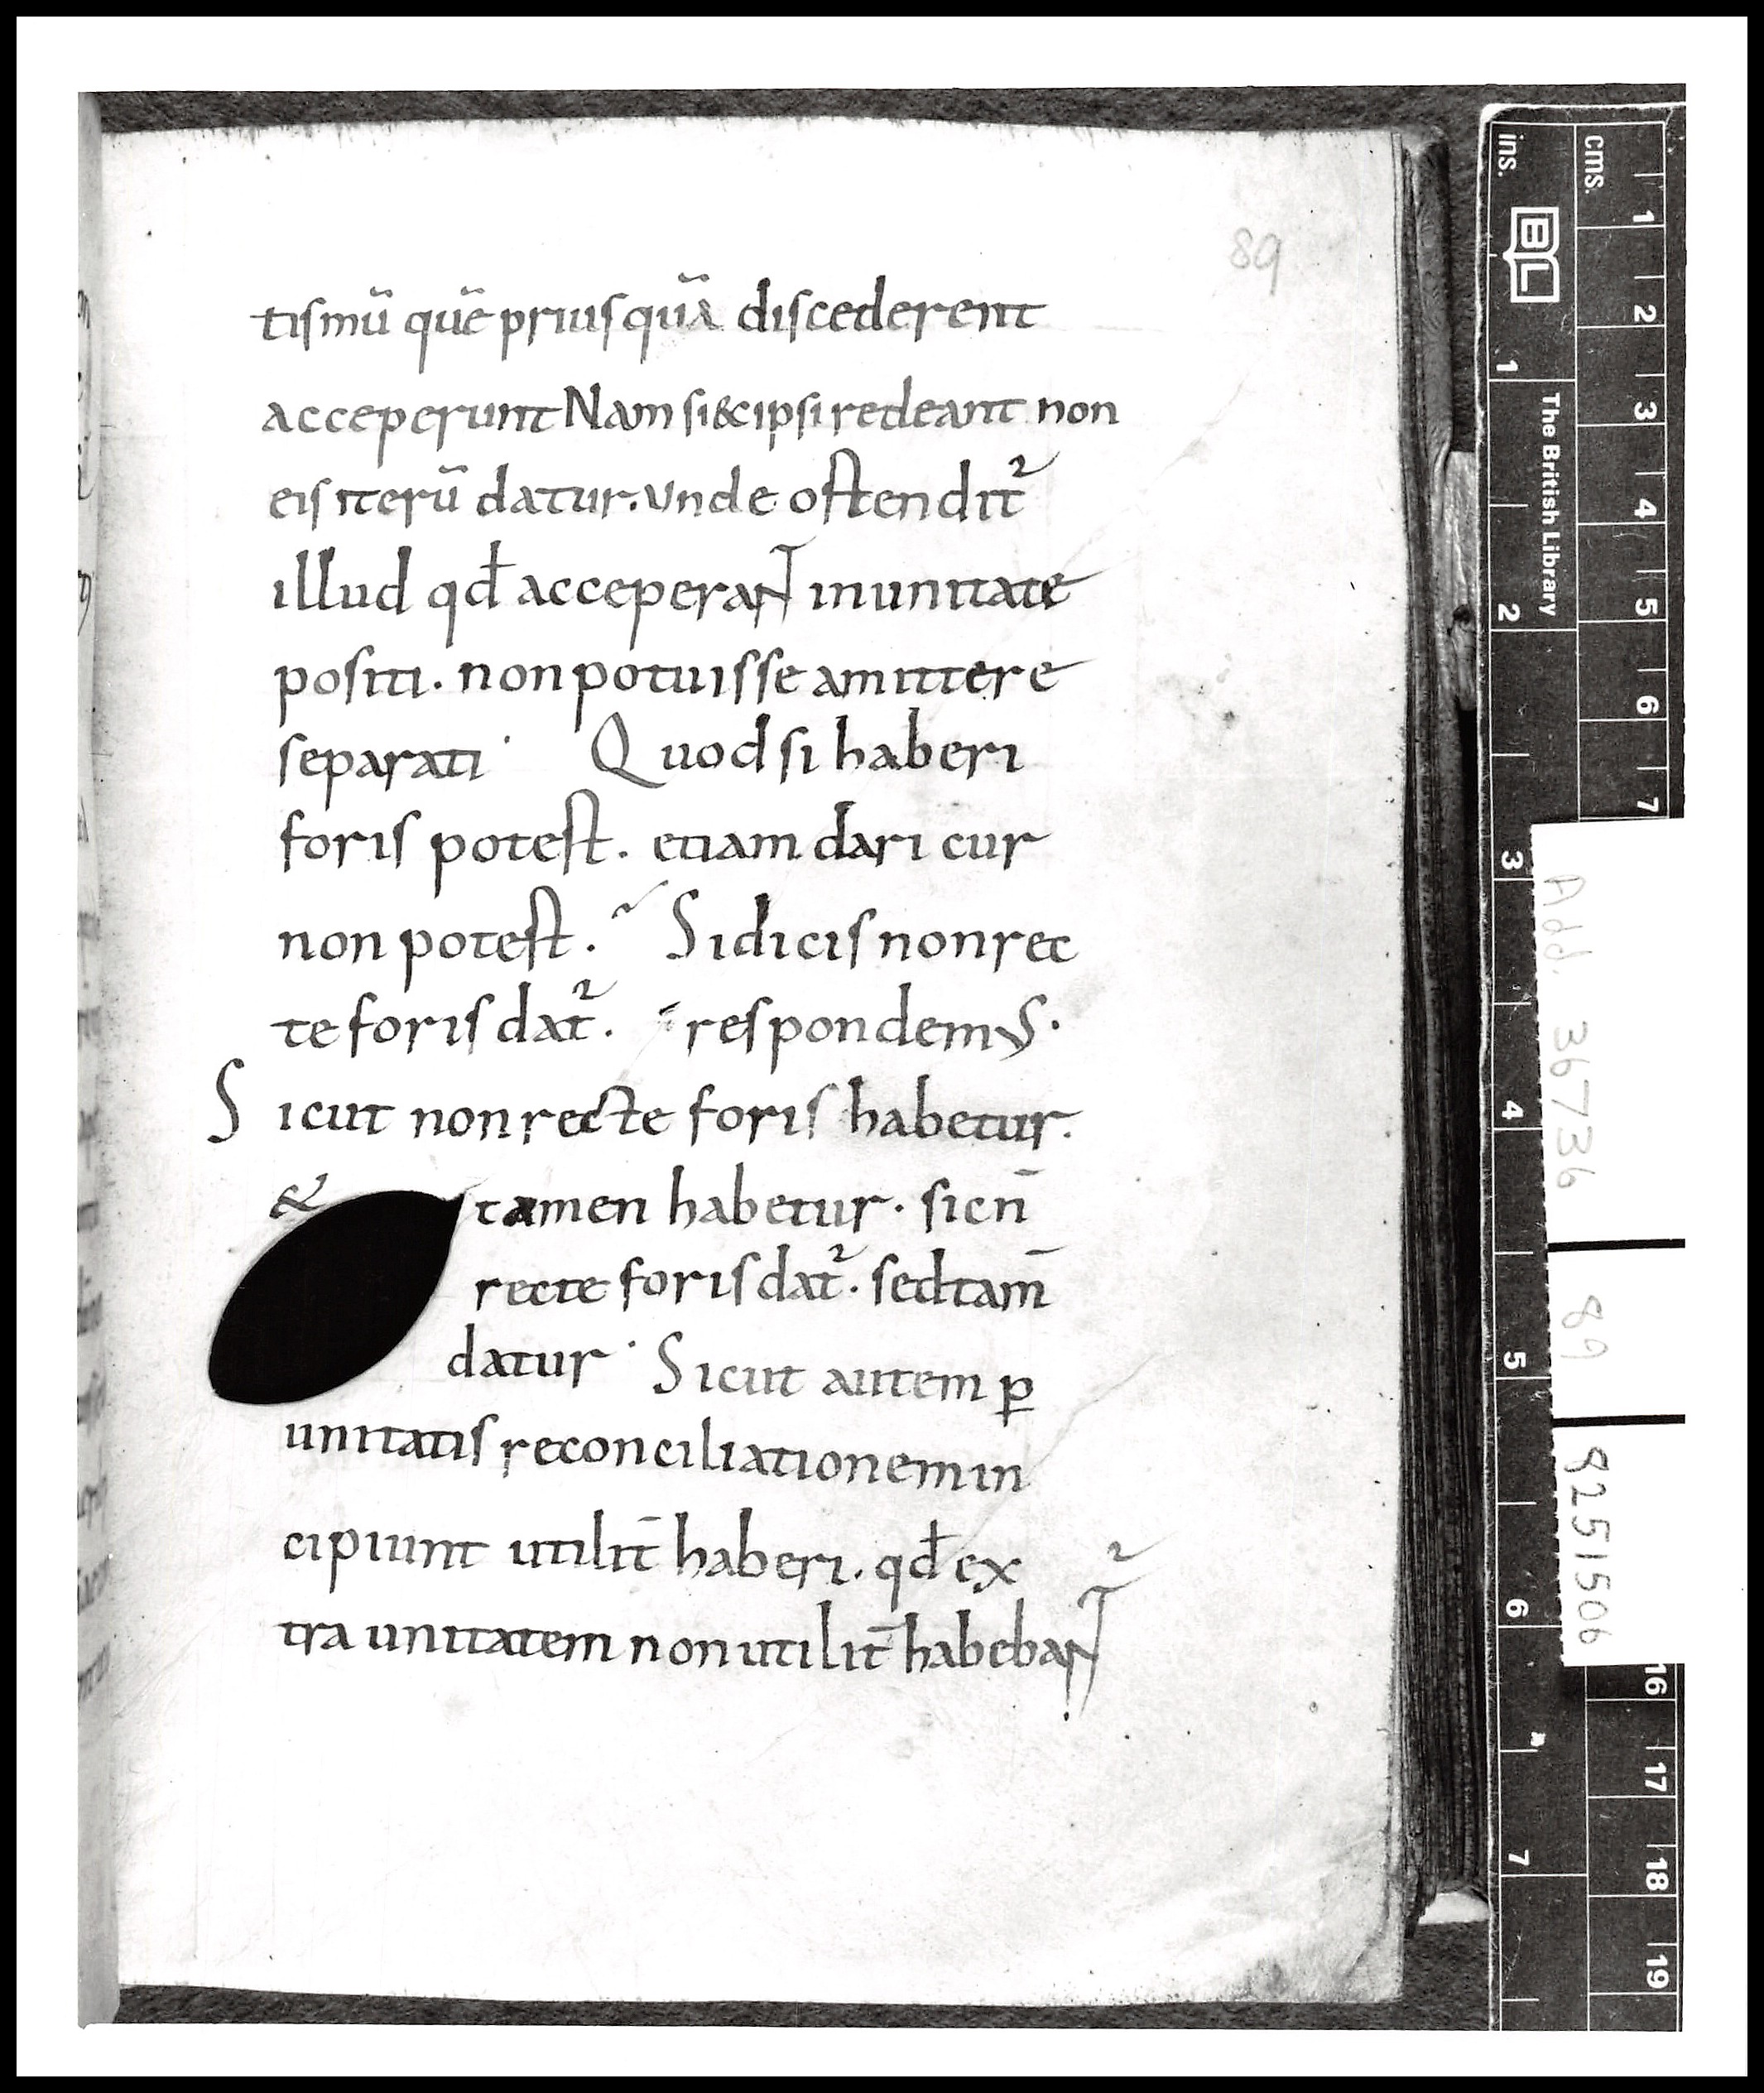 89
tismū quē priusquā discederent
acceperunt Nam si & ipsi redeant non
eis iterū datur. Unde ostendit᷑
illud qđ acceperaNT in unitate
positi. non potuisse amittere
separati· Quod si haberi
foris potest. etiam dari cur
non potest.~ Si dicis non rec
te foris dat᷑. respondemuS.
Sicut non recte foris habetur.
& tamen habetur. sic n̄
recte foris dat᷑. sed tam̄
datur· Sicut autem ꝑ
unitatis reconciliationem in
cipiunt utilit̄ haberi. qđ ex
tra unitatem non utilit̄ habebaNT᷑.
ins. cms.
BL The British Library
1 2 3 4 5 6 7
1 2 3 4 5 6 7 16 17 18 19
Add. 36736
89
8251506